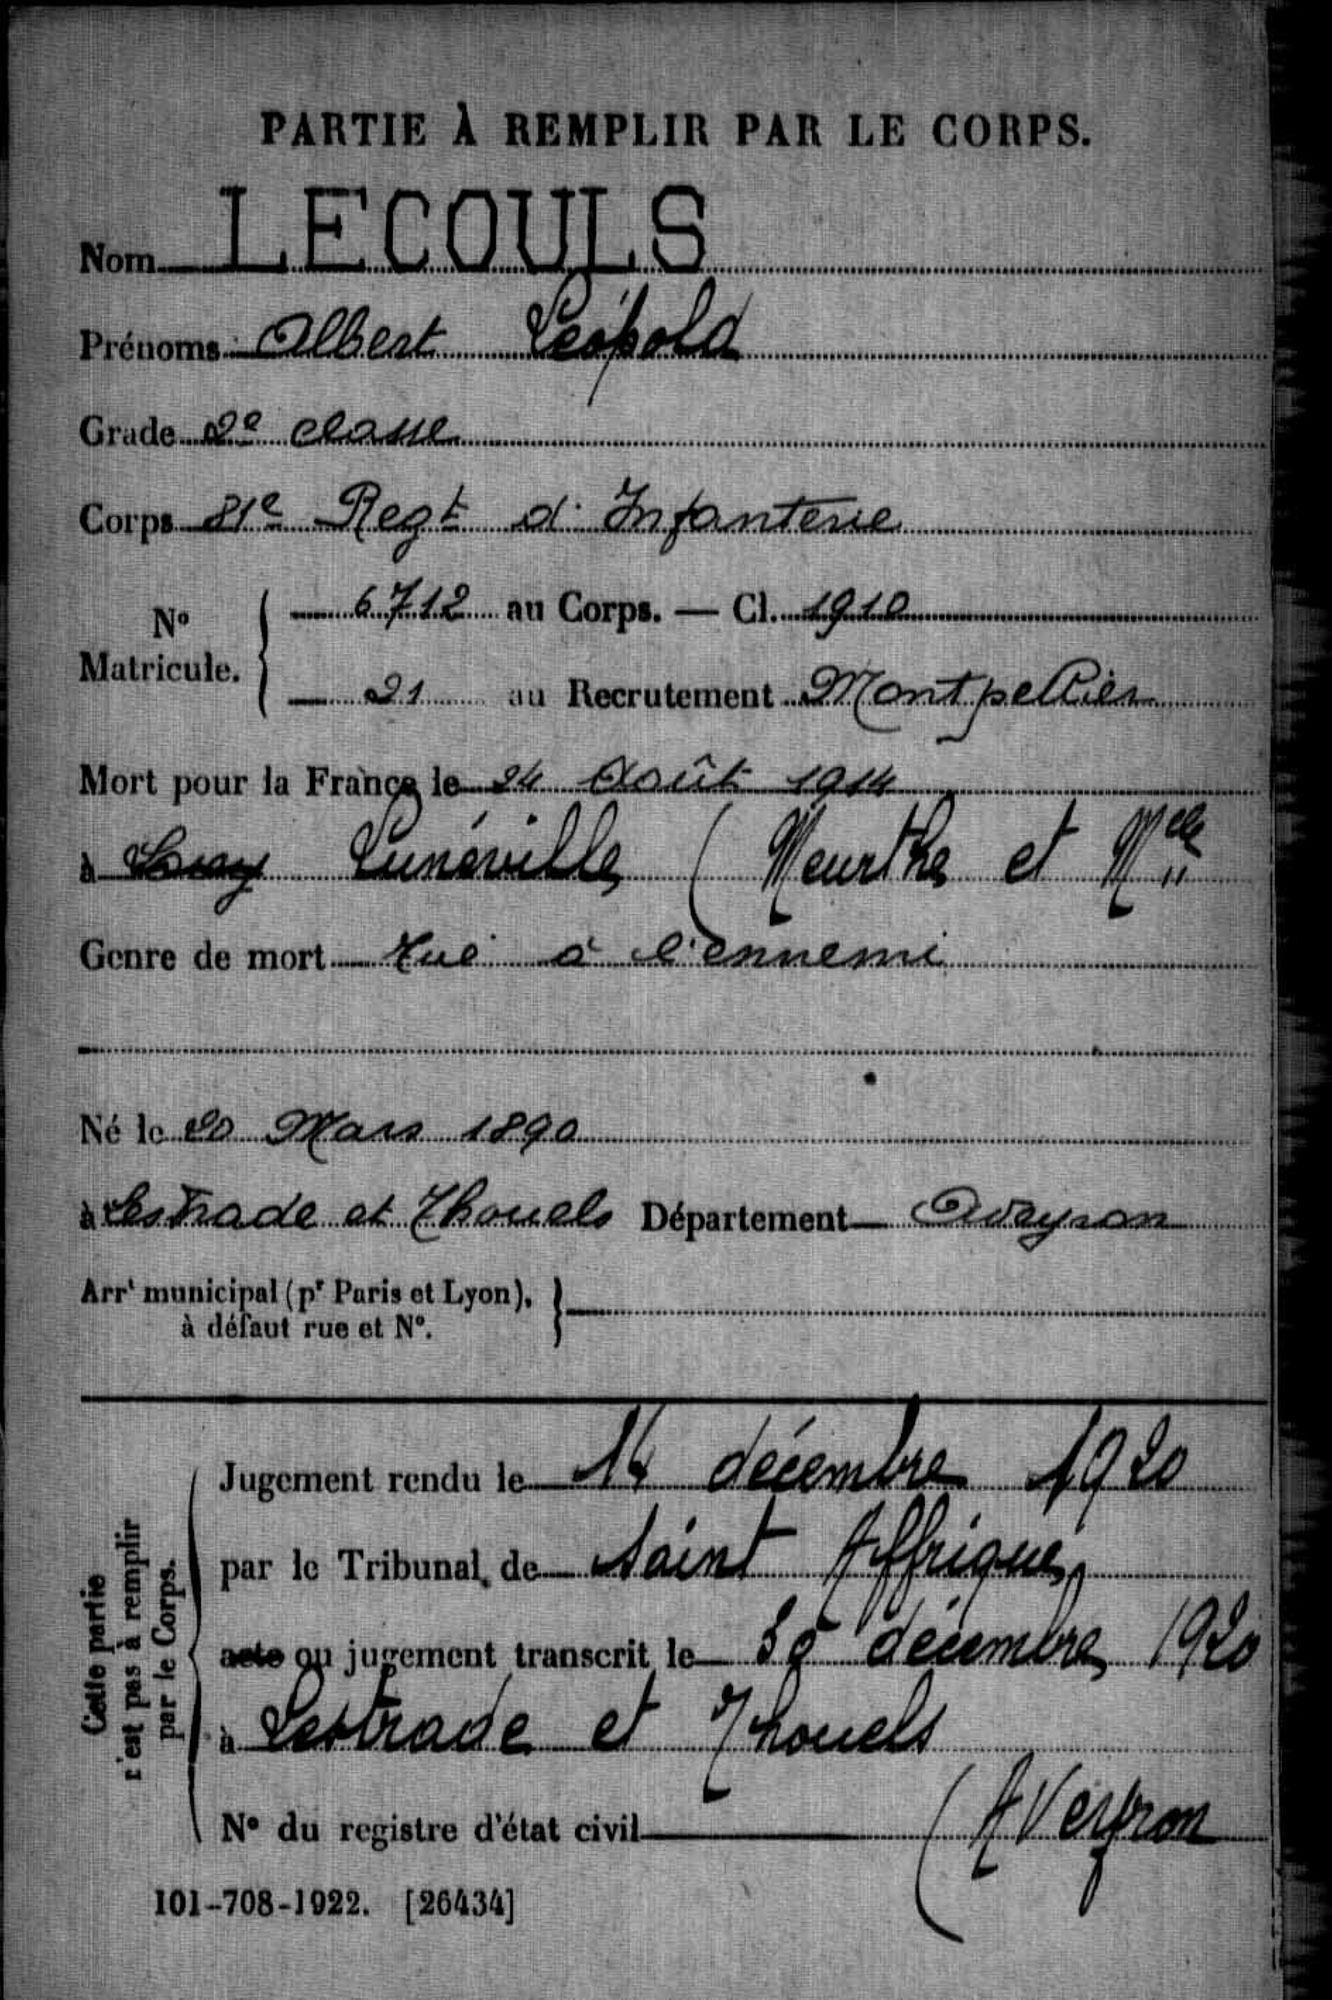 PARTIE À REMPLIR PAR LE CORPS.
Nom LECOULS
Prénoms Albert Léopold
Grade 2e classe
Corps 81e Regt d'Infanterie
No Matricule. 6712 au Corps. — Cl. 1910
21 au Recrutement Montpellier
Mort pour la France le 24 Août 1914
à Lunéville (Meurthe et Mlle
Genre de mort tué à l'ennemi
Né le 20 Mars 1890
à Lestrade et Thouels Département Aveyron
Arrt municipal (pr Paris et Lyon),
à défaut rue et No.
Jugement rendu le 14 décembre 1920
par le Tribunal de Saint Affrique
acte ou jugement transcrit le 30 décembre 1920
à Lestrade et Thouels
No du registre d'état civil (AVeyron
Cette partie
n'est pas à remplir
par le Corps.
101-708-1922. [26434]